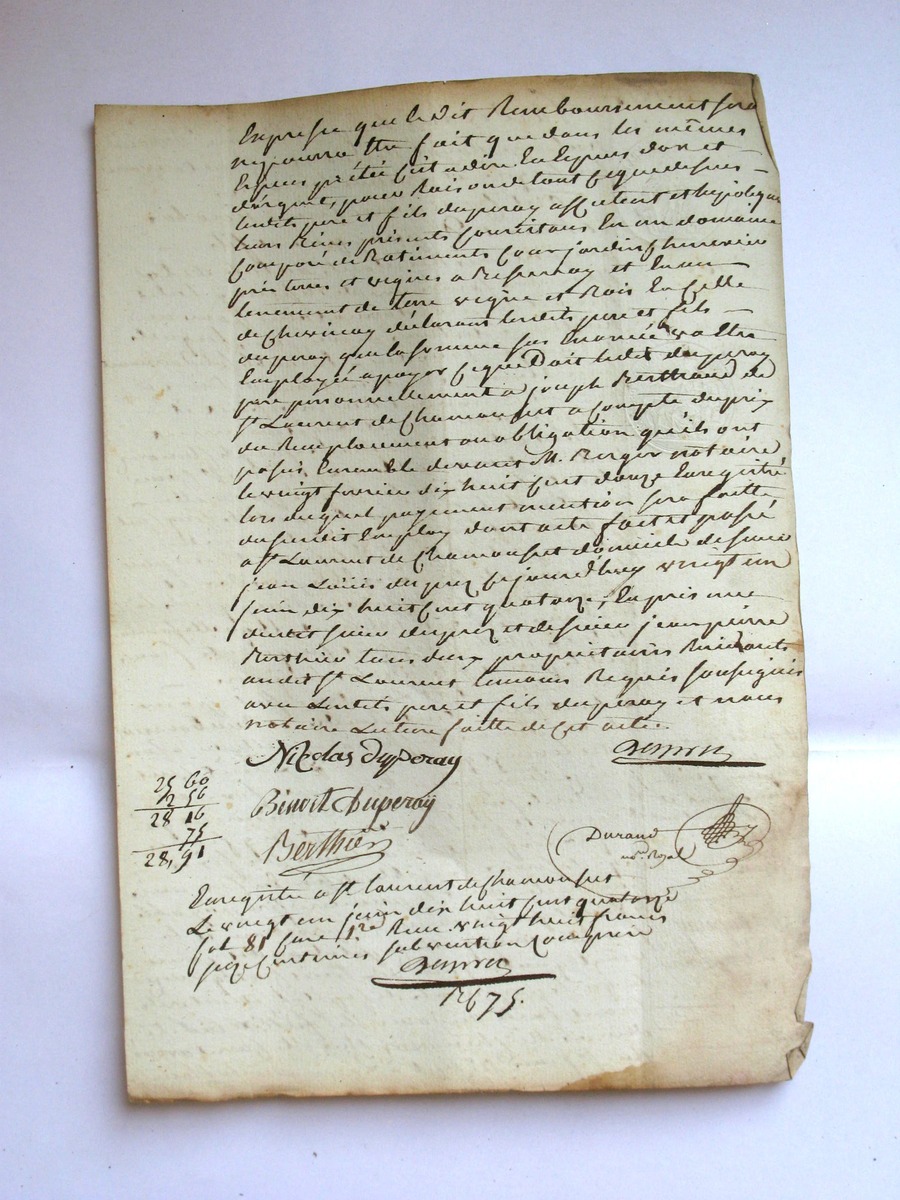 Expresse que le dit Remboursement sera
ne pourra être fait que dans les mêmes
Especes prêtée c'est a dire En Especes d'or et
d'argent, pour Raison de tout ce que dessus
lesdits pere et fils duperay affectent et hypotequent
leurs Biens présents Consistans En un domaine
Composé de Batiments Cour jardin cheneviere
prés terres et vignes a Bessenay et En un
tenement de terre vigne et Bois En Celle
de Chevinay déclarant lesdits pere et fils
duperay que la somme sus Enoncée va Etre
Employée a payer ce que Doit ledit duperay
pere personnellement a joseph Berthaud de
St Laurent de Chamousset a compte du prix
du Remplacement ou obligation qu'ils ont
passés Ensemble devant M. Berger notaire
le vingt fevrier dix huit cent douze Enregistré
lors duquel payement mention sera faitte
du susdit Employ dont acte fait et passé
a St Laurent de Chamousset domicile de sieur
jean Louis duprez ce jourd'huy vingt un
juin dix huit cent quatorze, En présence
dudit sieur duprez et de sieur jean pierre
Berthier tous deux propriétaires Residants
audit St Laurent temoins Requis soussignés
avec lesdits pere et fils duperay et nous
notaire Lecture faitte de cet acte.
Nicolas Duperay
Benoit Duperay
Berthier
Durand
no.re Royal
25 60
2 56
28 16
75
28, 91
Enregistré a St laurent de Chamousset
Le vingt un juin dix huit cent quatorze
fol. 81 Case 1re Reçu vingt huit francs
seize Centimes subvention Comprise
R 6 75.